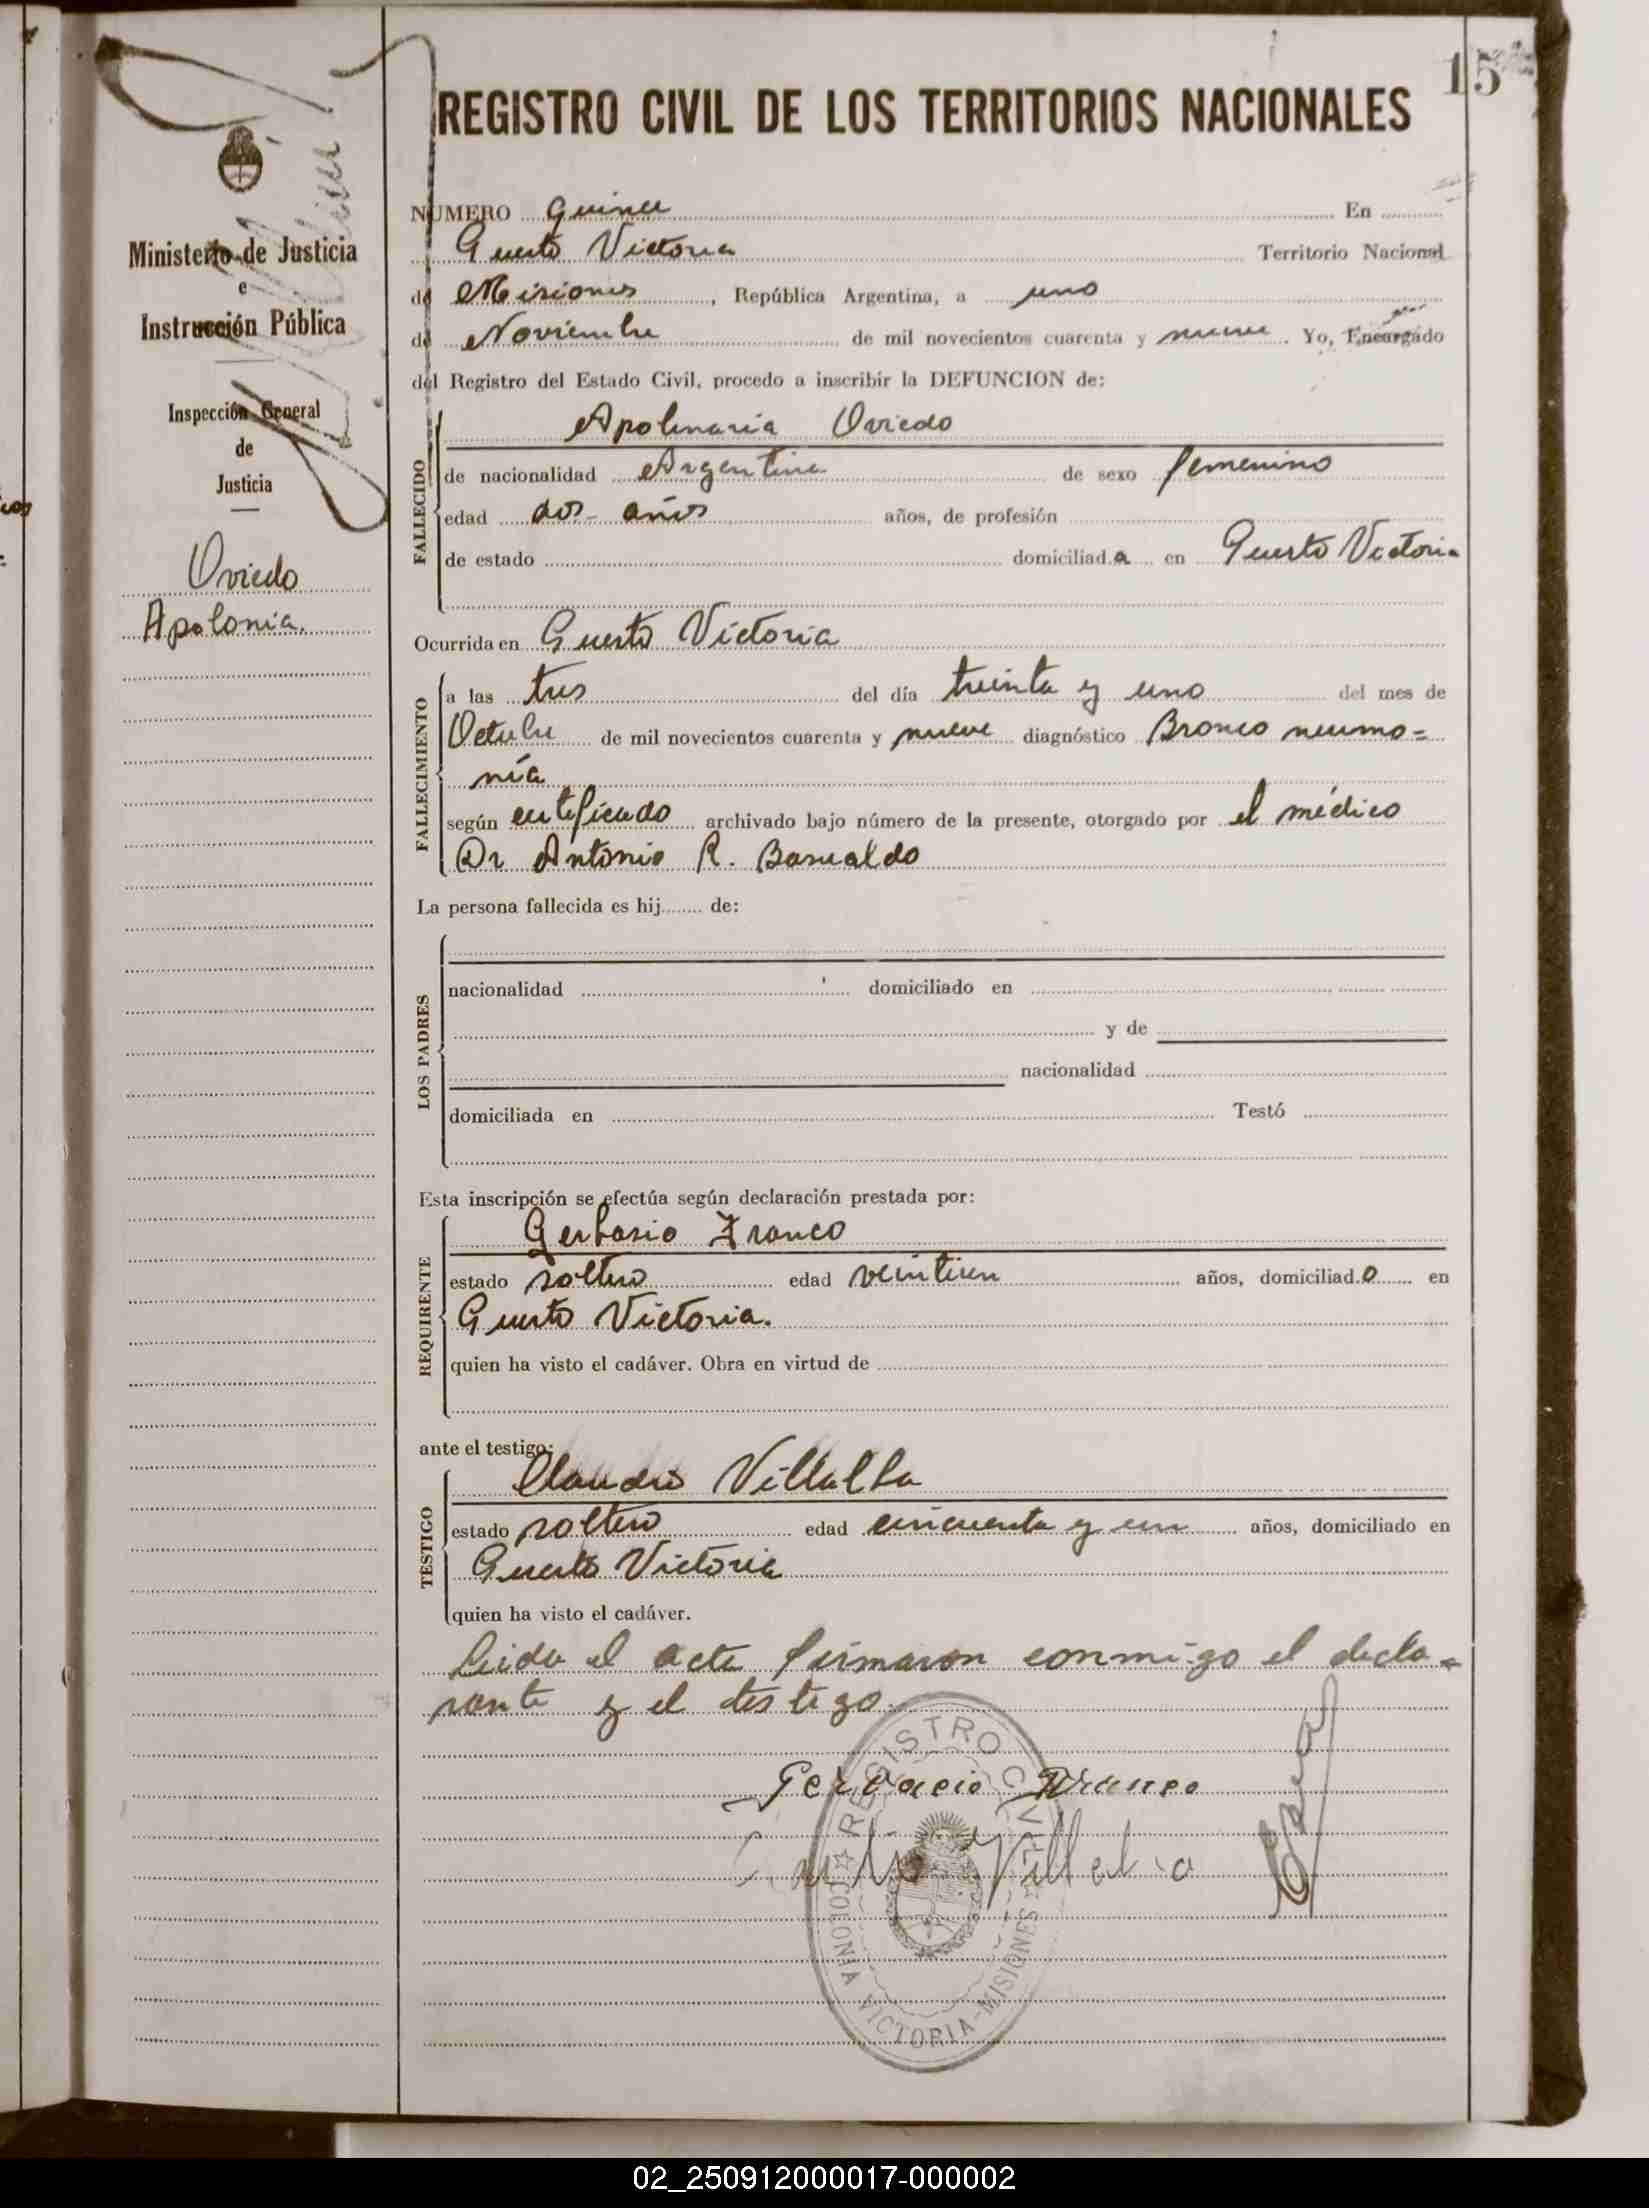 15
REGISTRO CIVIL DE LOS TERRITORIOS NACIONALES
Ministerio de Justicia
e
Instrucción Pública
Inspección General
de
Justicia
Oviedo
Apolonia.
NUMERO quince En
Puerto Victoria Territorio Nacional
de Misiones, República Argentina, a uno
de Noviembre de mil novecientos cuarenta y nueve. Yo, Encargado
del Registro del Estado Civil, procedo a inscribir la DEFUNCION de:
FALLECIDO
Apolinaria Oviedo
de nacionalidad Argentina de sexo femenino
edad dos años años, de profesión
de estado domiciliad.a en Puerto Victoria
Ocurrida en Puerto Victoria
FALLECIMIENTO
a las tres del día treinta y uno del mes de
Octubre de mil novecientos cuarenta y nueve diagnóstico Bronco neumo=
nía
según certificado archivado bajo número de la presente, otorgado por el médico
Dr Antonio R. Basualdo
La persona fallecida es hij........ de:
LOS PADRES
nacionalidad domiciliado en
y de
nacionalidad
domiciliada en Testó
Esta inscripción se efectúa según declaración prestada por:
REQUIRENTE
Gerbasio Franco
estado soltero edad años, domiciliad.o en
Puerto Victoria.
quien ha visto el cadáver. Obra en virtud de
ante el testigo:
TESTIGO
Claudio Villalba
estado soltero edad cincuenta y un años, domiciliado en
Puerto Victoria
quien ha visto el cadáver.
Leida el acta firmaron conmigo el decla=
rante y el testigo.
Gervacio Franco
Villalba
REGISTRO CIVIL
COLONIA VICTORIA-MISIONES
02_250912000017-000002